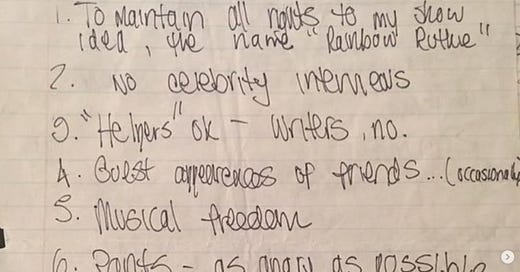 1. To maintain all rights to my show
idea, the name "Rainbow Ruthie"
2. No celebrity interviews
3. "Helpers" ok - writers, no.
4. Guest appearences of friends...(occasionally
5. Musical freedom
6. Rants - as angry as possible